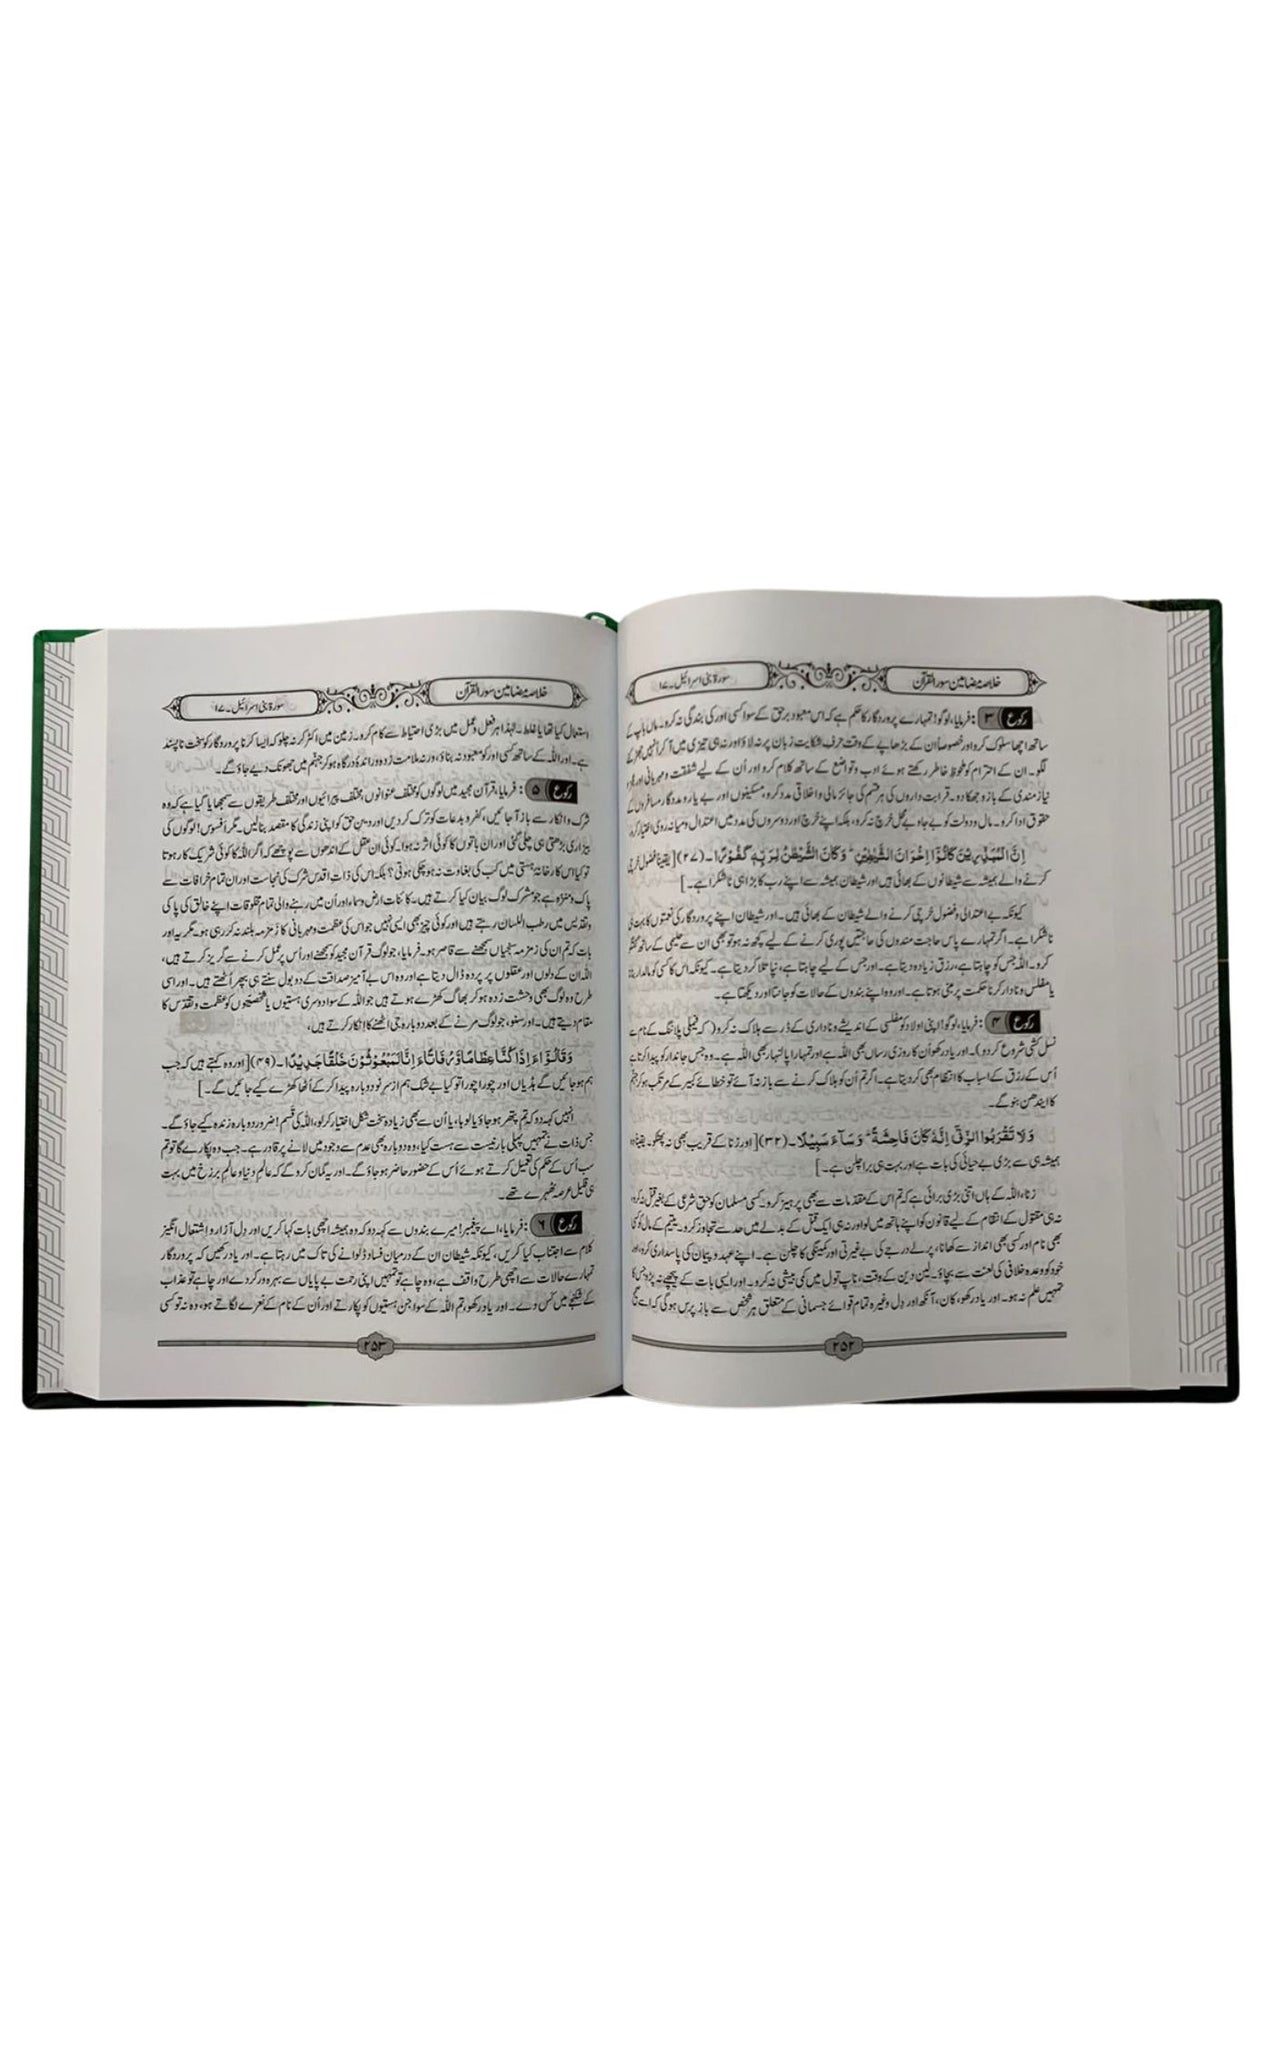 خلاصہ مضامین سور القرآن
سورۃ بنی اسرائیل۔۱۷
رکوع ۳ : فرمایا، لوگو! تمہارے پروردگار کا حکم ہے کہ اس معبود برحق کے سوا کسی اور کی بندگی نہ کرو۔ ماں باپ کے
ساتھ اچھا سلوک کرو اور خصوصاً ان کے بڑھاپے کے وقت حرف شکایت زبان پر نہ لاؤ اور نہ ہی تیزی میں آ کر انہیں جھڑکنے
لگو۔ ان کے احترام کو ملحوظ خاطر رکھتے ہوئے ادب و تواضع کے ساتھ کلام کرو اور اُن کے لیے شفقت و مہربانی اور عجز و
نیاز مندی کے بازو جھکا دو۔ قرابت داروں کی ہر قسم کی جائز مالی و اخلاقی مدد کرو، مسکینوں اور بے یار و مددگار مسافروں کے
حقوق ادا کرو۔ مال و دولت کو بے جا و بے محل خرچ نہ کرو، بلکہ اپنے خرچ اور دوسروں کی مدد میں اعتدال و میانہ روی اختیار کرو۔
اِنَّ الْمُبَذِّرِیْنَ کَانُوْۤا اِخْوَانَ الشَّیٰطِیْنِ ؕ وَکَانَ الشَّیْطٰنُ لِرَبِّهٖ کَفُوْرًا۔ (۲۷) [یقیناً فضول خرچی
کرنے والے ہمیشہ سے شیطانوں کے بھائی ہیں اور شیطان ہمیشہ سے اپنے رب کا بڑا ہی ناشکرا ہے۔]
کیونکہ بے اعتدالی و فضول خرچی کرنے والے شیطان کے بھائی ہیں۔ اور شیطان اپنے پروردگار کی نعمتوں کا بہت ہی
ناشکرا ہے۔ اگر تمہارے پاس حاجت مندوں کی حاجتیں پوری کرنے کے لیے کچھ نہ ہو تو بھی ان سے حلیمی کے ساتھ گفتگو
کرو۔ اللہ جس کو چاہتا ہے، رزق زیادہ دیتا ہے۔ اور جس کے لیے چاہتا ہے، نپا تلا کر دیتا ہے۔ کیونکہ اس کا کسی کو مالدار بنانا
یا مفلس و نادار کرنا حکمت پر مبنی ہوتا ہے۔ اور وہ اپنے بندوں کے حالات کو جانتا اور دیکھتا ہے۔
رکوع ۴ : فرمایا، لوگو! اپنی اولاد کو مفلسی کے اندیشے و ناداری کے ڈر سے ہلاک نہ کرو (کہ فیملی پلاننگ کے نام سے
نسل کشی شروع کر دو)۔ اور یاد رکھو اُن کا روزی رساں بھی اللہ ہے اور تمہارا پالنہار بھی اللہ ہے۔ وہ جس جاندار کو پیدا کرتا ہے
اُس کے رزق کے اسباب کا انتظام بھی کر دیتا ہے۔ اگر تم اُن کو ہلاک کرنے سے باز نہ آئے تو خطائے کبیر کے مرتکب ہو کر جہنم
کا ایندھن بنو گے۔
وَلَا تَقْرَبُوا الزِّنٰۤی اِنَّهٗ کَانَ فَاحِشَةً ؕ وَسَآءَ سَبِیْلًا۔ (۳۲) [اور زنا کے قریب بھی نہ پھٹکو۔ یقیناً وہ
ہمیشہ ہی سے بڑی بے حیائی کی بات ہے اور بہت ہی برا چلن ہے۔]
زنا، اللہ کے ہاں اتنی بڑی برائی ہے کہ تم اس کے مقدمات سے بھی پرہیز کرو۔ کسی مسلمان کو حق شرعی کے بغیر قتل نہ کرو،
نہ ہی مقتول کے انتقام کے لیے قانون کو اپنے ہاتھ میں لو اور نہ ہی ایک قتل کے بدلے میں حد سے تجاوز کرو۔ یتیم کے مال کو کسی
بھی نام اور کسی بھی انداز سے کھانا، پرلے درجے کی بے غیرتی اور کمینگی کا چلن ہے۔ اپنے عہد و پیمان کی پاسداری کرو، اور
خود کو وعدہ خلافی کی لعنت سے بچاؤ۔ لین دین کے وقت، ناپ تول میں کمی بیشی نہ کرو۔ اور ایسی بات کے پیچھے نہ پڑو جس کا
تمہیں علم نہ ہو۔ اور یاد رکھو، کان، آنکھ اور دل وغیرہ تمام قوائے جسمانی کے متعلق ہر شخص سے باز پرس ہوگی کہ اسے صحیح
۲۵۲
خلاصہ مضامین سور القرآن
سورۃ بنی اسرائیل۔۱۷
استعمال کیا تھا یا غلط۔ لہٰذا ہر فعل و عمل میں بڑی احتیاط سے کام کرو۔ زمین میں اکڑ کر نہ چلو کہ ایسا کرنا پروردگار کو سخت ناپسند
ہے۔ اور اللہ کے ساتھ کسی اور کو معبود نہ بناؤ، ورنہ ملامت زدہ و راندۂ درگاہ ہو کر جہنم میں جھونک دیے جاؤ گے۔
رکوع ۵ : فرمایا، قرآن مجید میں لوگوں کو مختلف عنوانوں، مختلف پیرائیوں اور مختلف طریقوں سے سمجھایا گیا ہے کہ وہ
شرک و انکار سے باز آ جائیں، کفر و بدعات کو ترک کر دیں اور دین حق کو اپنی زندگی کا مقصد بنا لیں۔ مگر افسوس! لوگوں کی
بیزاری بڑھتی ہی چلی گئی اور ان باتوں کا کوئی اثر نہ ہوا۔ کوئی ان عقل کے اندھوں سے پوچھے کہ اگر اللہ کا کوئی شریک کار ہوتا
تو کیا اس کارخانۂ ہستی میں کب کی بغاوت نہ ہو چکی ہوتی؟ بلکہ اس کی ذات اقدس شرک کی نجاست اور ان تمام خرافات سے
پاک و منزہ ہے جو مشرک لوگ بیان کیا کرتے ہیں۔ کائنات ارض و سماء اور اُن میں رہنے والی تمام مخلوقات اپنے خالق کی پاکی
و تقدیس میں رطب اللسان رہتے ہیں اور کوئی چیز بھی ایسی نہیں جو اس کی عظمت و مہربانی کا زمزمہ بلند نہ کر رہی ہو۔ مگر یہ اور
بات کہ تم ان کی زمزمہ سنجیاں سمجھنے سے قاصر ہو۔ فرمایا، جو لوگ قرآن مجید کو سمجھنے اور اُس پر عمل کرنے سے گریز کرتے ہیں،
اللہ ان کے دلوں اور عقلوں پر پردہ ڈال دیتا ہے اور وہ اس بے آمیز صداقت کے دو بول سنتے ہی بپھر اُٹھتے ہیں۔ اور اسی
طرح وہ لوگ بھی وحشت زدہ ہو کر بھاگ کھڑے ہوتے ہیں جو اللہ کے سوا دوسری ہستیوں یا شخصیتوں کو عظمت و تقدس کا
مقام دیتے ہیں۔ اور سنو، جو لوگ مرنے کے بعد دوبارہ جی اٹھنے کا انکار کرتے ہیں،
وَقَالُوْۤا ءَاِذَا کُنَّا عِظَامًا وَّرُفَاتًا ءَاِنَّا لَمَبْعُوْثُوْنَ خَلْقًا جَدِیْدًا۔ (۴۹) [اور وہ کہتے ہیں کہ جب
ہم ہو جائیں گے ہڈیاں اور چورا چورا تو کیا بے شک ہم از سر نو دوبارہ پیدا کر کے اُٹھا کھڑے کیے جائیں گے۔]
انہیں کہہ دو کہ تم پتھر ہو جاؤ یا لوہا، یا اُن سے بھی زیادہ سخت شکل اختیار کر لو، اللہ کی قسم! ضرور دوبارہ زندہ کیے جاؤ گے۔
جس ذات نے تمہیں پہلی بار نیست سے ہست کیا، وہ دوبارہ بھی عدم سے وجود میں لانے پر قادر ہے۔ جب وہ پکارے گا تو تم
سب اُس کے حکم کی تعمیل کرتے ہوئے اُس کے حضور حاضر ہو جاؤ گے۔ اور یہ گمان کرو گے کہ عالم دنیا و عالم برزخ میں بہت
ہی قلیل عرصہ ٹھہرے تھے۔
رکوع ۶ : فرمایا، اے پیغمبر! میرے بندوں سے کہہ دو کہ وہ ہمیشہ اچھی بات کہا کریں اور دل آزار و اشتعال انگیز
کلام سے اجتناب کیا کریں، کیونکہ شیطان ان کے درمیان فساد ڈلوانے کی تاک میں رہتا ہے۔ اور یاد رکھیں کہ پروردگار
تمہارے حالات سے اچھی طرح واقف ہے، وہ چاہے تو تمہیں اپنی رحمت بے پایاں سے بہرہ ور کر دے اور چاہے تو عذاب
کے شکنجے میں کس دے۔ اور یاد رکھو، تم اللہ کے سوا جن ہستیوں کو پکارتے اور اُن کے نام کے نعرے لگاتے ہو، وہ نہ تو کسی
۲۵۳